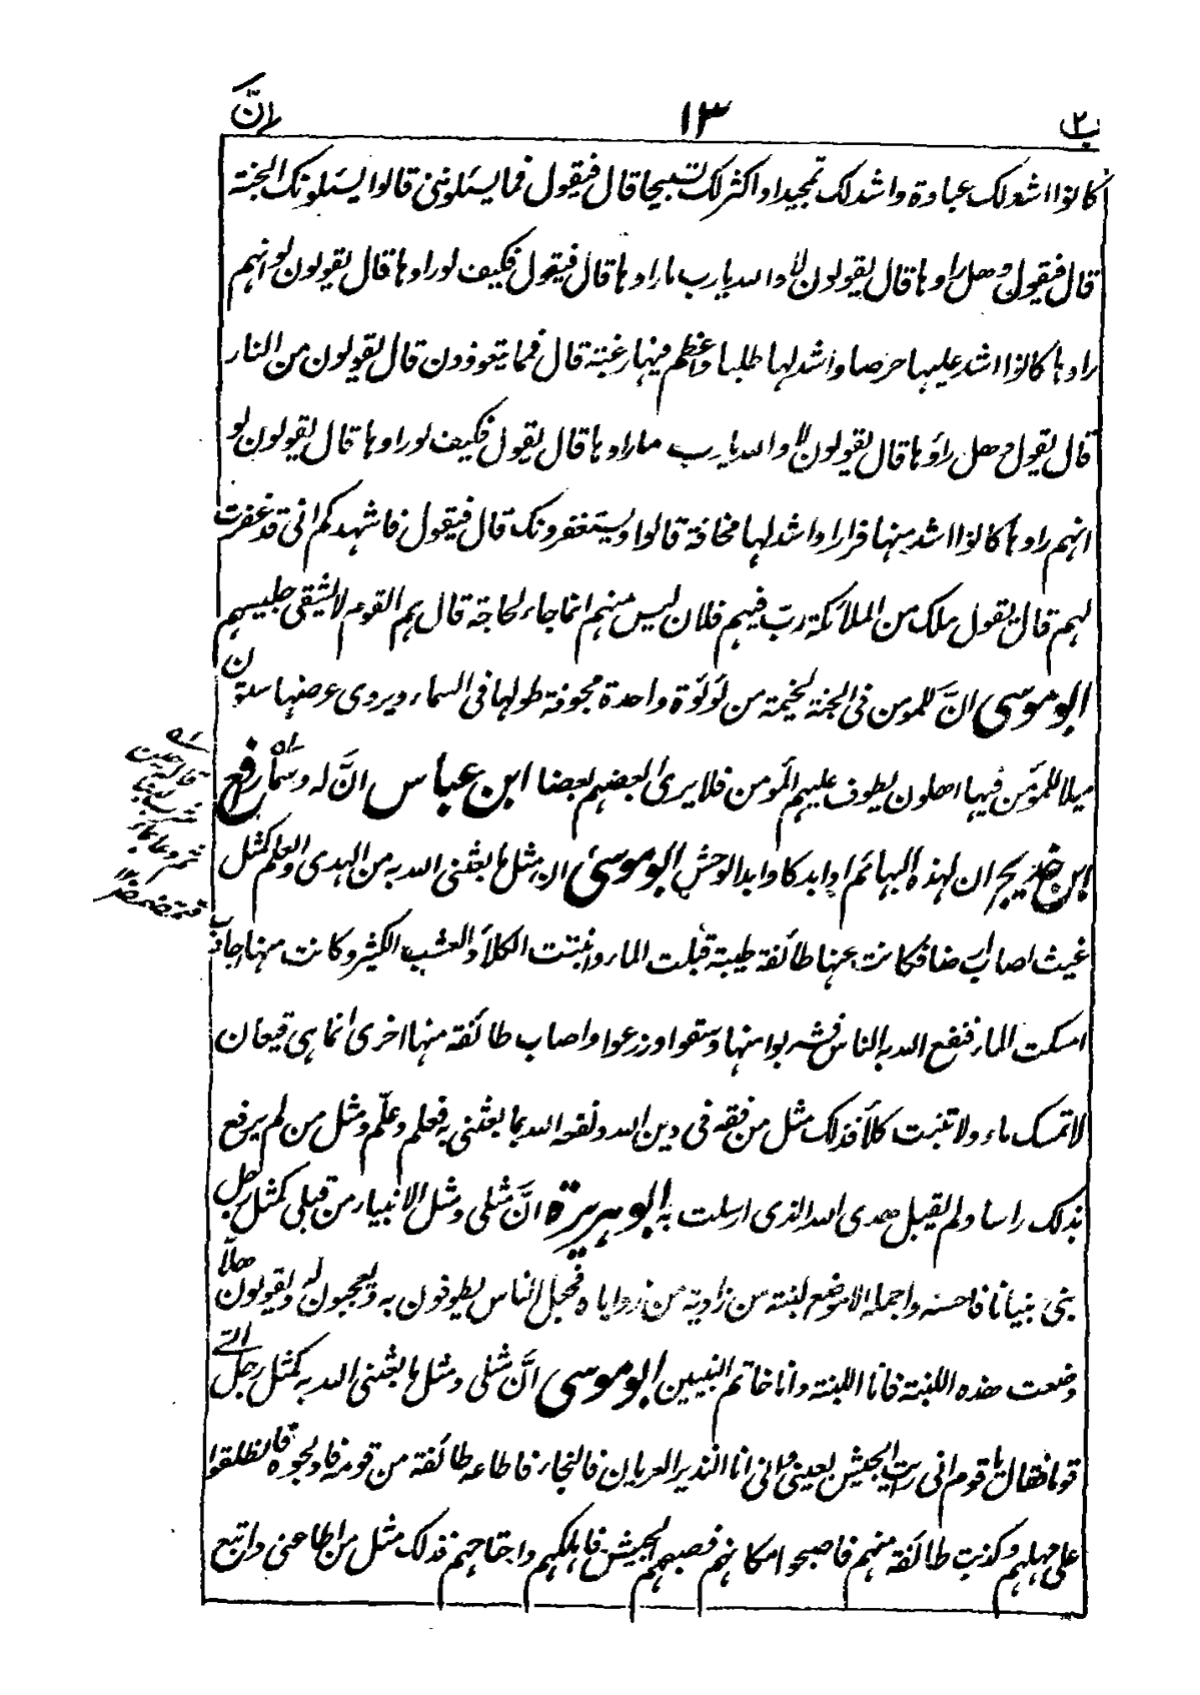 ب۲ ۱۳ اِنَّ
كانوا اشد لك عبادة واشد لك تمجيدا واكثر لك تسبيحا قال فيقول فما يسئلوننى قالوا يسئلونك الجنة
قال فيقول وهل راوها قال يقولون لا والله يا رب ما راوها قال فيقول فكيف لو راوها قال يقولون لو انهم
راوها كانوا اشد عليها حرصا واشد لها طلبا واعظم فيها رغبة قال فمما يتعوذون قال يقولون من النار
قال يقول وهل رأوها قال يقولون لا والله يا رب ما راوها قال يقول فكيف لو راوها قال يقولون لو
انهم راوها كانوا اشد منها فرارا واشد لها مخافة قالوا ويستغفرونك قال فيقول فاشهدكم انى قد غفرت
لهم قال يقول ملك من الملائكة رب فيهم فلان ليس منهم انما جاء لحاجة قال هم القوم لا يشقى جليسهم
ابو موسى انَّ للمومن فى الجنة لخيمة من لؤلؤة واحدة مجوفة طولها فى السماء ويروى عرضها ستون
ميلا للمؤمن فيها اهلون يطوف عليهم المومن فلا يرى بعضهم بعضا ابن عباس انَّ له دسما رافع
ابن خديج ان لهذه البهائم اوابد كاوابد الوحش ابو موسى ان مثل ما بعثنى الله به من الهدى والعلم كمثل
غيث اصاب ارضا فكانت منها طائفة طيبة قبلت الماء وانبتت الكلأ والعشب الكثير وكانت منها اجادب
امسكت الماء فنفع الله بها الناس فشربوا منها وسقوا وزرعوا واصاب طائفة منها اخرى انما هى قيعان
لا تمسك ماء ولا تنبت كلأ فذلك مثل من فقه فى دين الله ونفعه الله بما بعثنى به فعلم وعلّم ومثل من لم يرفع
بذلك راسا ولم يقبل هدى الله الذى ارسلت به ابو هريرة انَّ مثلى ومثل الانبياء من قبلى كمثل رجل
بنى بنيانا فاحسنه واجمله الا موضع لبنة من زاوية من زواياه فجعل الناس يطوفون به ويعجبون له ويقولون هلا
وضعت هذه اللبنة فانا اللبنة وانا خاتم النبيين ابو موسى انَّ مثلى ومثل ما بعثنى الله به كمثل رجل اتى
قوما فقال يا قوم انى رايت الجيش بعينى وانى انا النذير العريان فالنجاء فاطاعه طائفة من قومه فادلجوا فانطلقوا
على مهلهم وكذبت طائفة منهم فاصبحوا مكانهم فصبحهم الجيش فاهلكهم واجتاحهم فذلك مثل من اطاعنى واتبع